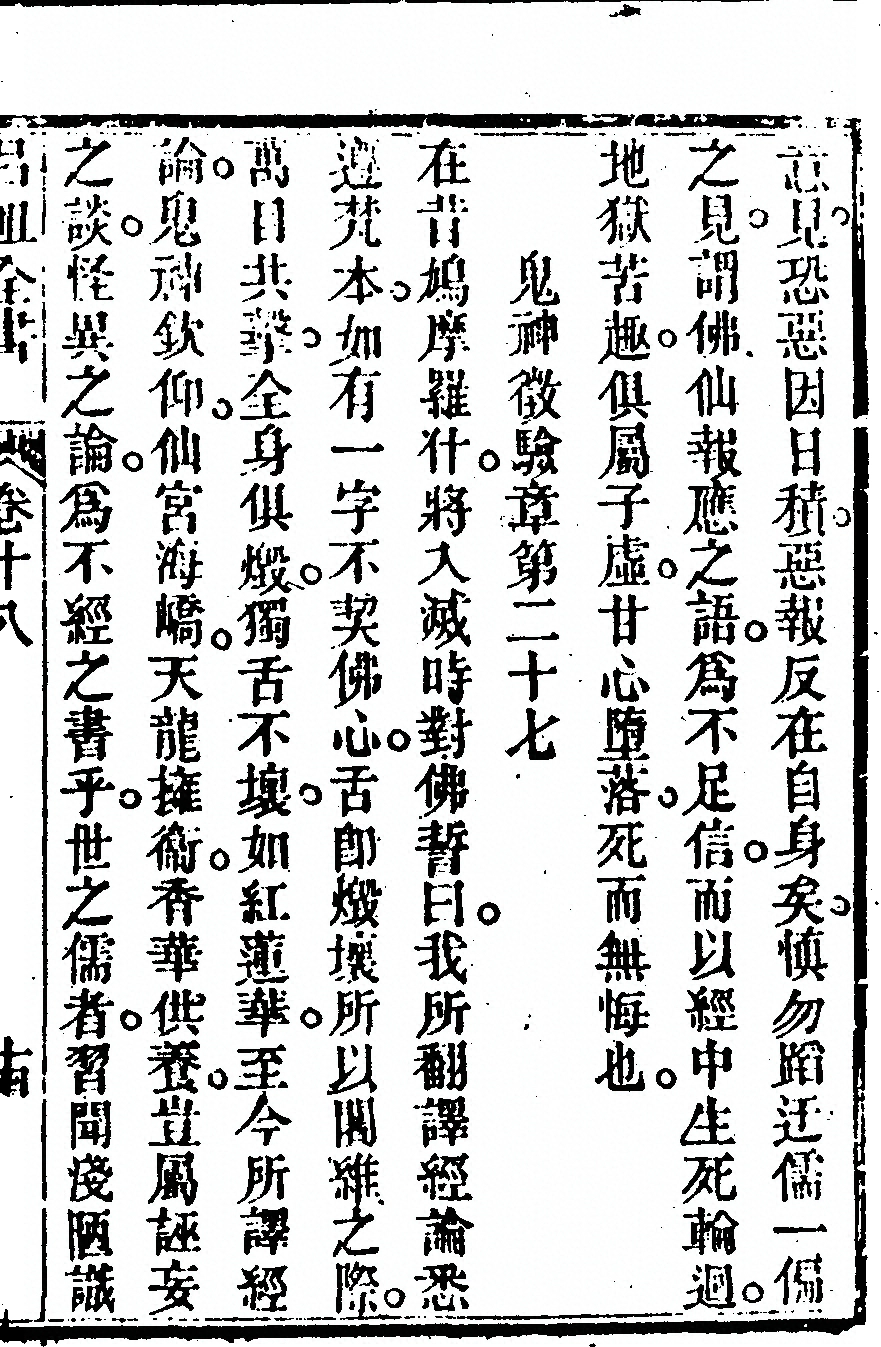 意見恐惡因日積惡報反在自身矣愼勿蹈迂儒一偏
之見謂佛仙報應之語爲不足信而以經中生死輪迴
地獄苦趣俱屬子虛甘心墮落死而無悔也
鬼神徵驗章第二十七
在昔鳩摩羅什將入滅時對佛誓曰我所翻譯經論悉
遵梵本如有一字不契佛心舌卽燬壞所以闍維之際
萬目共擊全身俱燬獨舌不壞如紅蓮華至今所譯經
論鬼神欽仰仙宮海嶠天龍擁衞香華供養豈屬誣妄
之談怪異之論爲不經之書乎世之儒者習聞淺陋譏
呂祖全書 卷十八